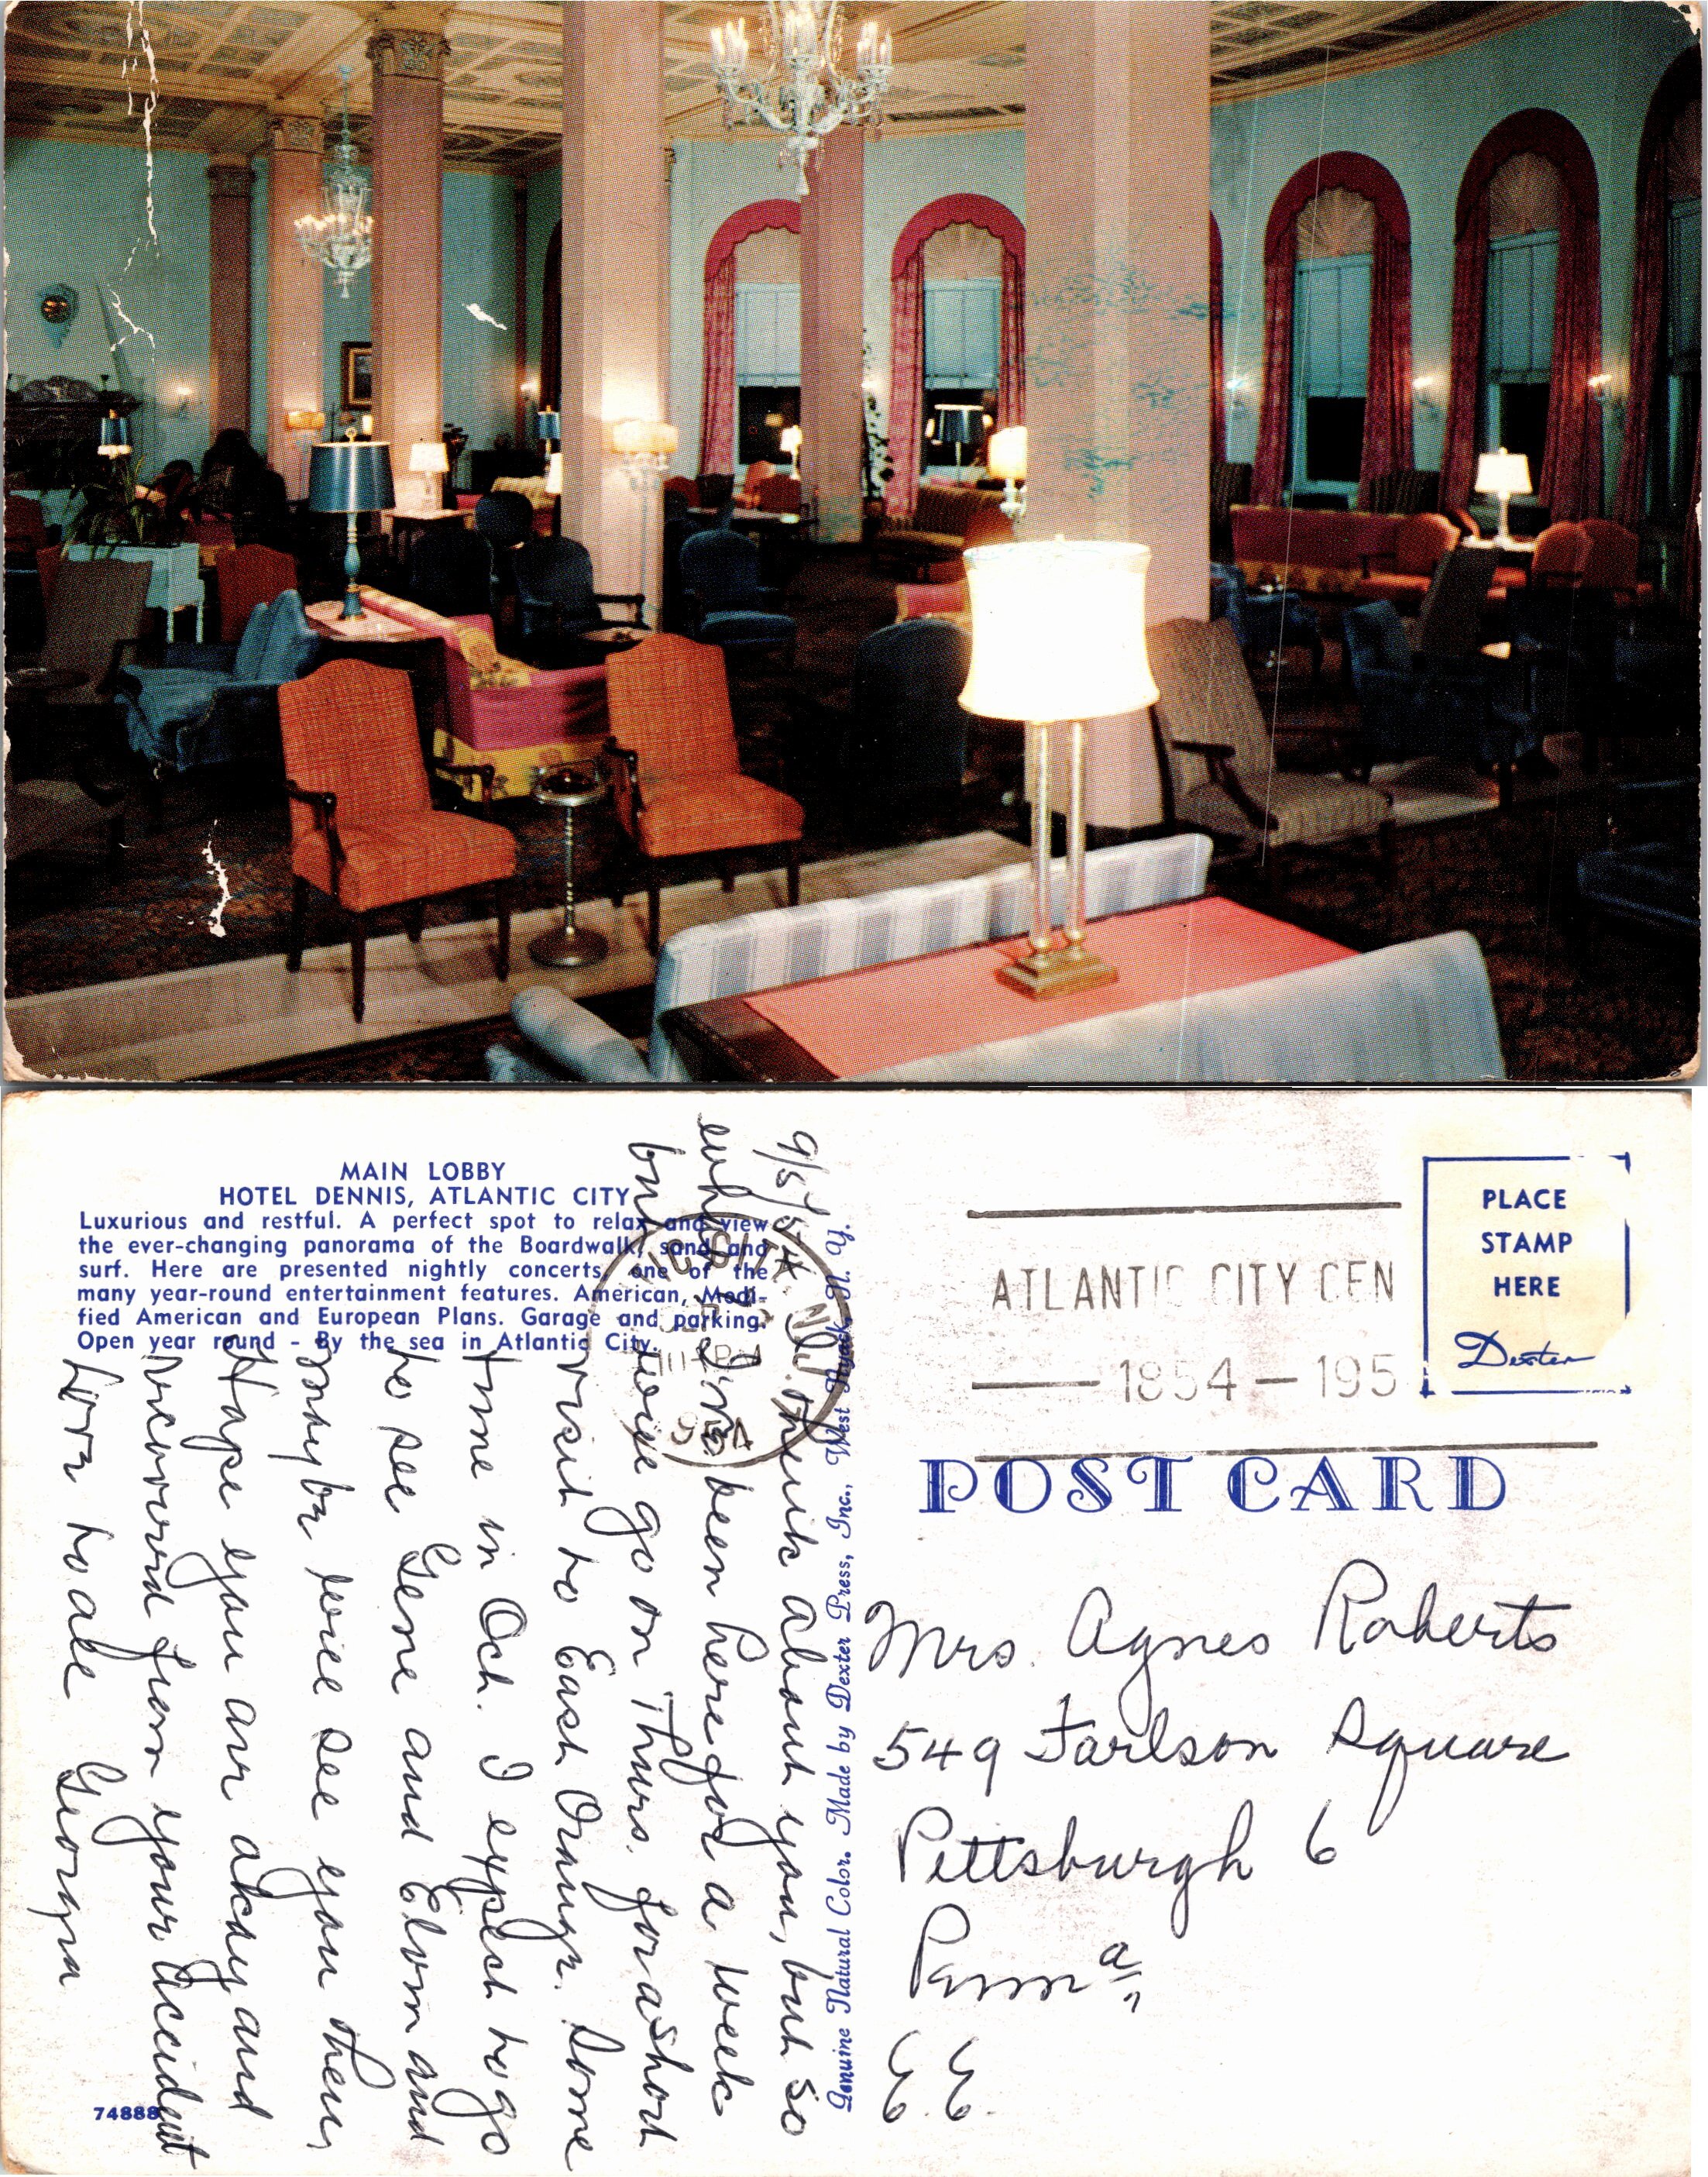 MAIN LOBBY
HOTEL DENNIS, ATLANTIC CITY
Luxurious and restful. A perfect spot to relax and view
the ever-changing panorama of the Boardwalk, sand and
surf. Here are presented nightly concerts, one of the
many year-round entertainment features. American, Modi-
fied American and European Plans. Garage and parking.
Open year round - By the sea in Atlantic City.
9/5/54 Think about you, but so
been here for a week
but will go on Thurs. for a short
visit to East Orange. Some
time in Oct. I expect to go
to see Gene and and
maybe will see you then
Hope you are okay and
recovered from your accident
Love to all Georgia
74888
Genuine Natural Color. Made by Dexter Press, Inc., West Nyack, N. Y.
IC CITY N.J.
1954
ATLANTIC CITY CEN
1854 – 195
PLACE
STAMP
HERE
Dexter
POST CARD
Mrs. Agnes Roberts
549 Farlson Square
Pittsburgh 6
Penna